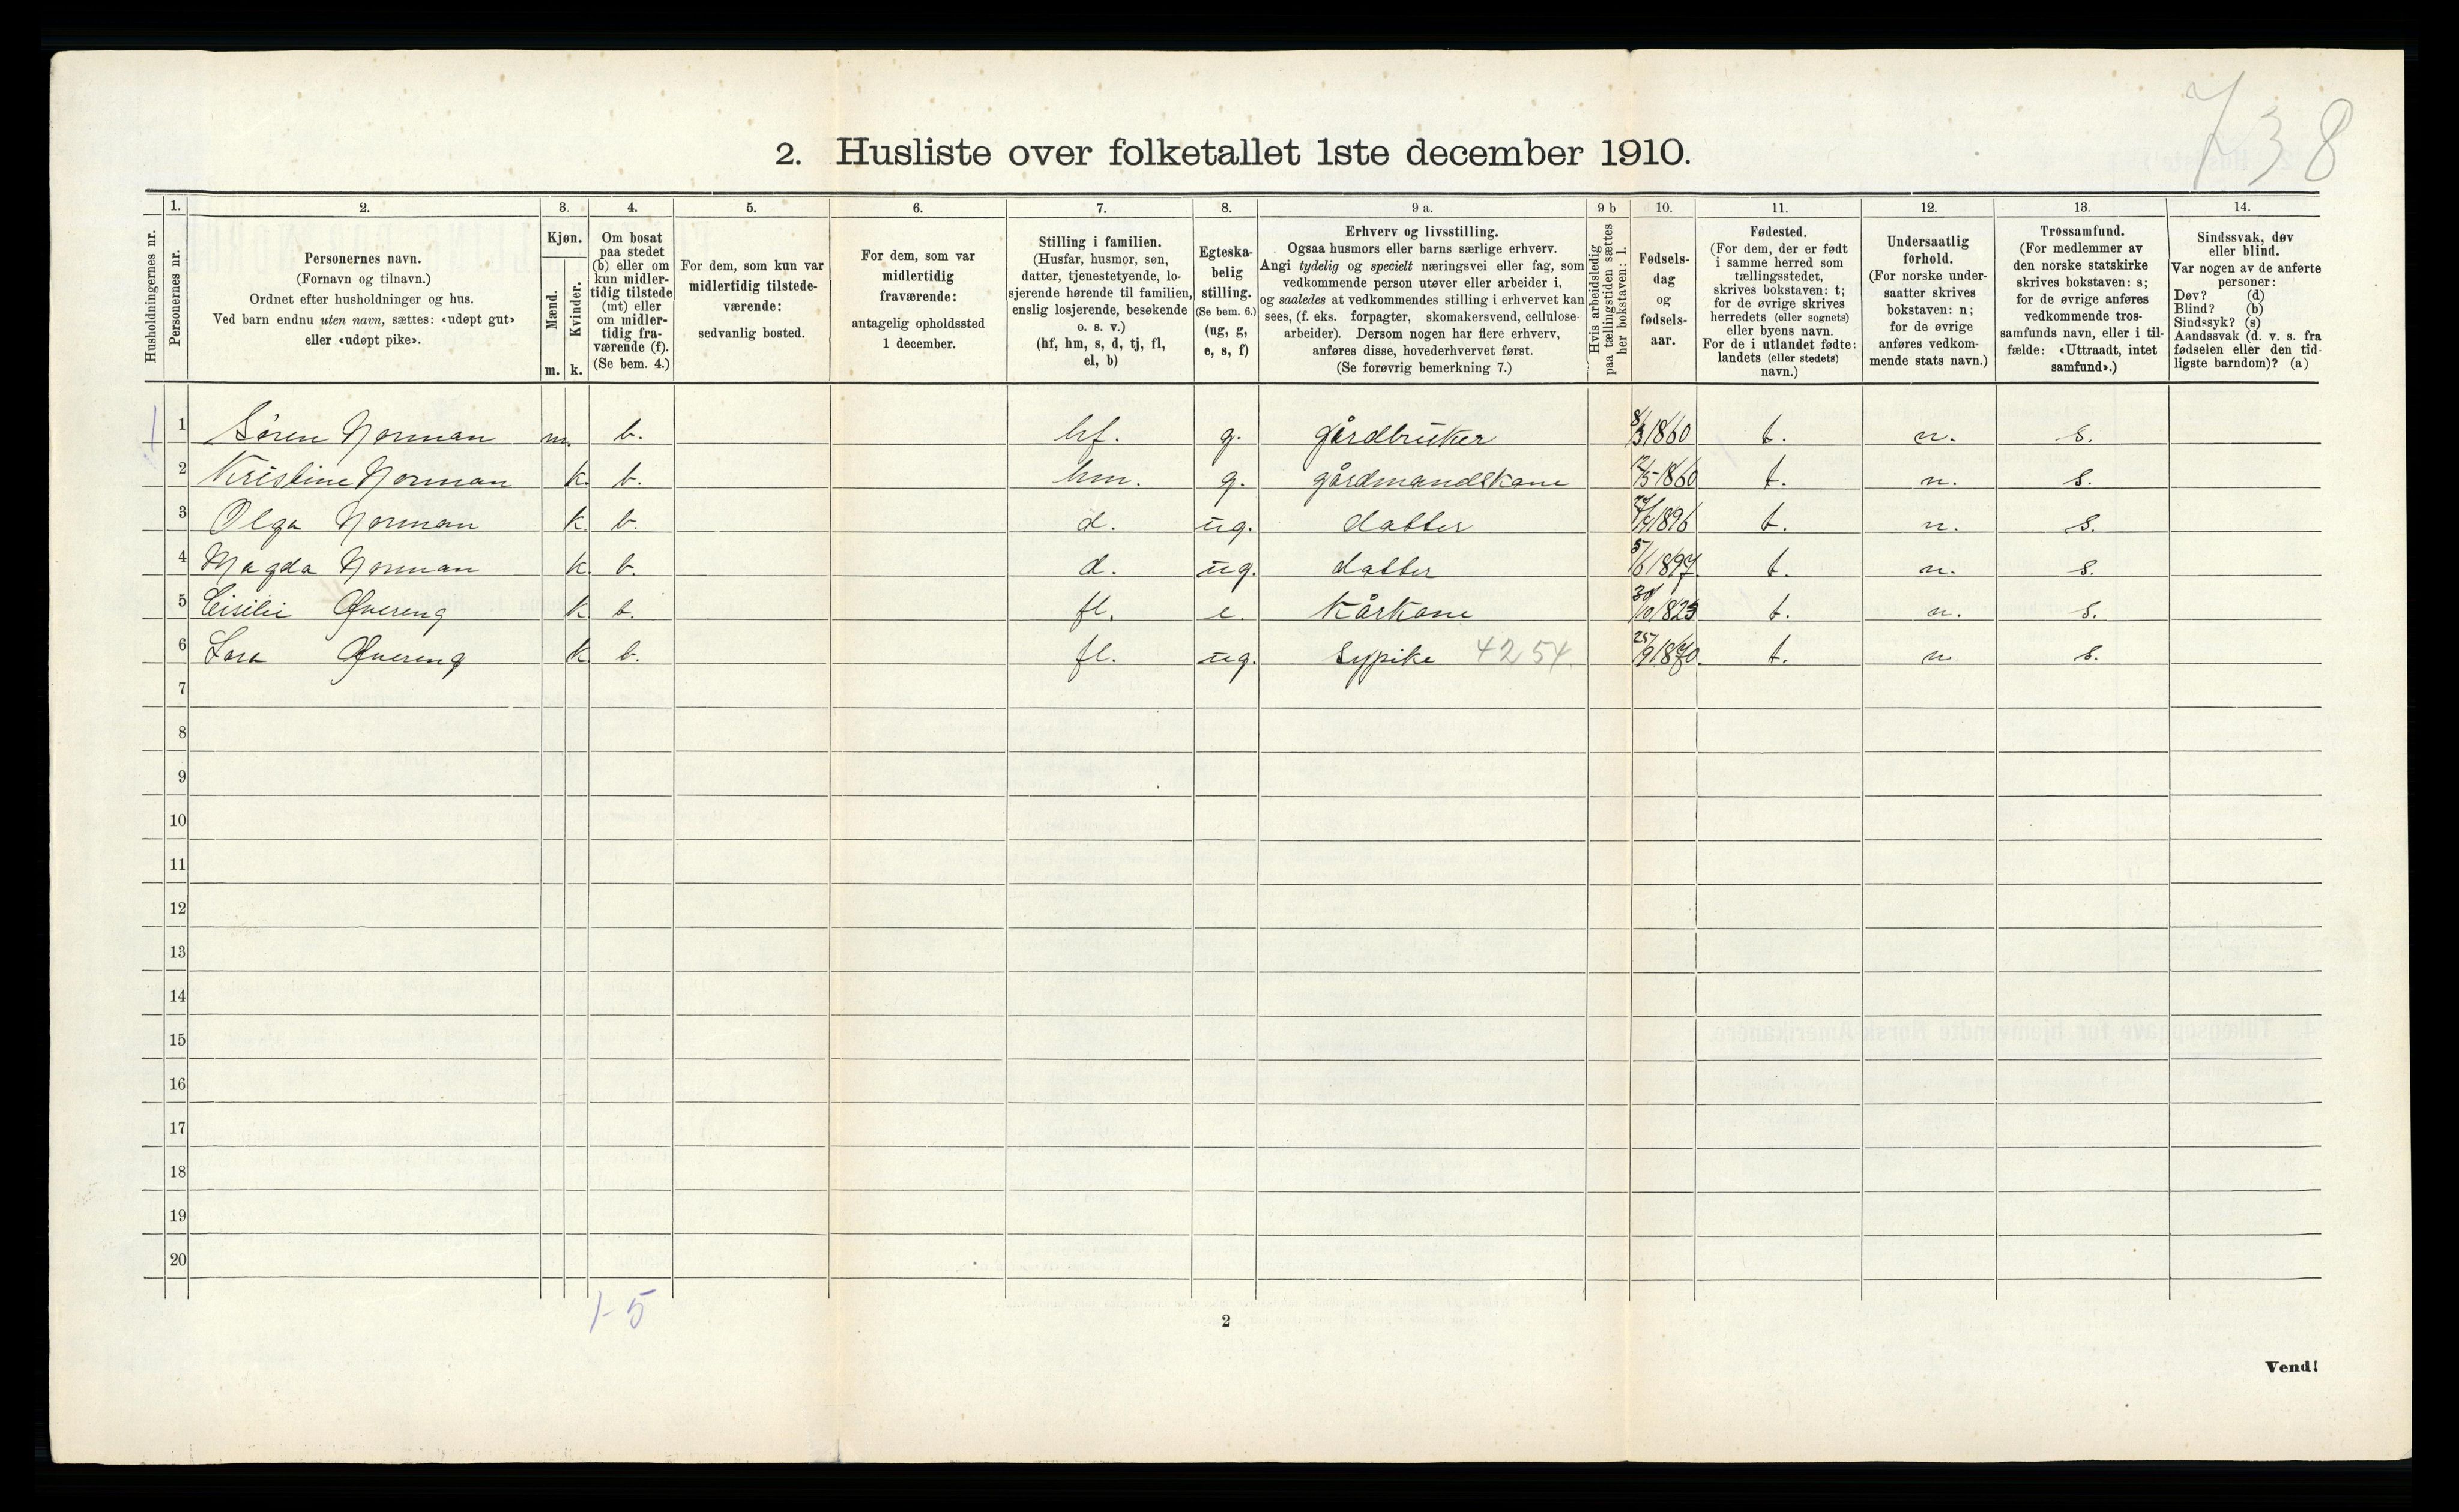 738
2. Husliste over folketallet 1ste december 1910.
1. 2. 3. 4. 5. 6. 7. 8. 9 a. 9 b 10. 11. 12. 13. 14.
Husholdningernes nr.
Personernes nr.
Personernes navn.
(Fornavn og tilnavn.)
Ordnet efter husholdninger og hus.
Ved barn endnu uten navn, sættes: «udøpt gut»
eller «udøpt pike».
Kjøn.
Mænd.
Kvinder.
m. k.
Om bosat
paa stedet
(b) eller om
kun midler-
tidig tilstede
(mt) eller
om midler-
tidig fra-
værende (f).
(Se bem. 4.)
For dem, som kun var
midlertidig tilstede-
værende:
sedvanlig bosted.
For dem, som var
midlertidig
fraværende:
antagelig opholdssted
1 december.
Stilling i familien.
(Husfar, husmor, søn,
datter, tjenestetyende, lo-
sjerende hørende til familien,
enslig losjerende, besøkende
o. s. v.)
(hf, hm, s, d, tj, fl,
el, b)
Egteska-
belig
stilling.
(Se bem. 6.)
(ug, g,
e, s, f)
Erhverv og livsstilling.
Ogsaa husmors eller barns særlige erhverv.
Angi tydelig og specielt næringsvei eller fag, som
vedkommende person utøver eller arbeider i,
og saaledes at vedkommendes stilling i erhvervet kan
sees, (f. eks. forpagter, skomakersvend, cellulose-
arbeider). Dersom nogen har flere erhverv,
anføres disse, hovederhvervet først.
(Se forøvrig bemerkning 7.)
Hvis arbeidsledig
paa tællingstiden sættes
her bokstaven: l.
Fødsels-
dag
og
fødsels-
aar.
Fødested.
(For dem, der er født
i samme herred som
tællingsstedet,
skrives bokstaven: t;
for de øvrige skrives
herredets (eller sognets)
eller byens navn.
For de i utlandet fødte:
landets (eller stedets)
navn.)
Undersaatlig
forhold.
(For norske under-
saatter skrives
bokstaven: n;
for de øvrige
anføres vedkom-
mende stats navn.)
Trossamfund.
(For medlemmer av
den norske statskirke
skrives bokstaven: s;
for de øvrige anføres
vedkommende tros-
samfunds navn, eller i til-
fælde: «Uttraadt, intet
samfund».)
Sindssvak, døv
eller blind.
Var nogen av de anførte
personer:
Døv? (d)
Blind? (b)
Sindssyk? (s)
Aandssvak (d. v. s. fra
fødselen eller den tid-
ligste barndom)? (a)
1 1 Sören Norman m. b. hf. g. gårdbruker 8/3 1860 t. n. s.
2 Kristine Norman k. b. hm. g. gårdmandskone /5-1860 t. n. s.
3 Olga Norman k. b. d. ug. datter 1896 t. n. s.
4 Magda Norman k. b. d. ug. datter 5/6 1897. t. n. s.
5 Cisilie Øvereng k. b. fl. e. Kårkone 30/10 1823 t. n. s.
6 Lora Øvereng k. b. fl. ug. Sypike 4254 25/9 1870. t. n s.
7
8
9
10
11
12
13
14
15
16
17
18
19
20
1-5
2
Vend!